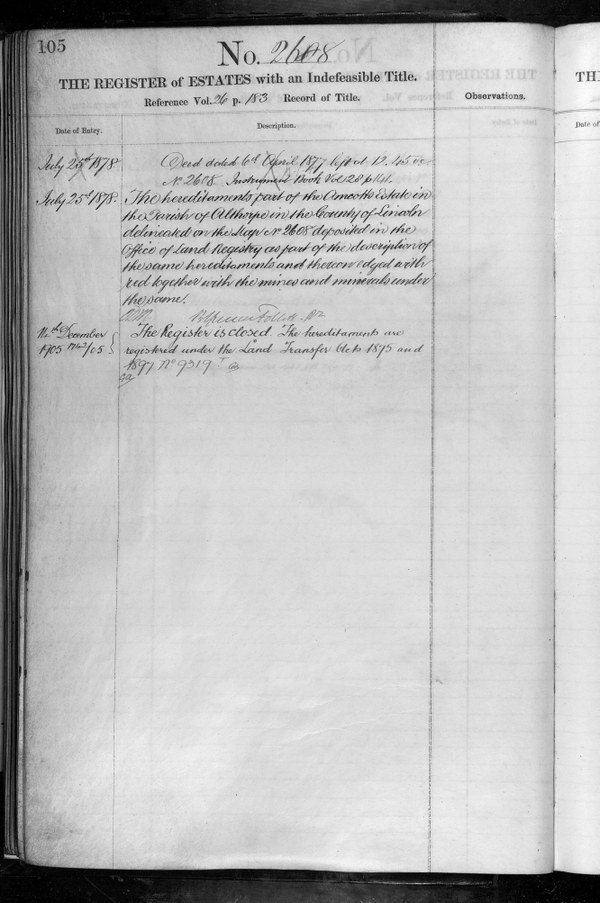 105
No. 2608
THE REGISTER of ESTATES with an Indefeasible Title.
Reference Vol. 26 p. 183 Record of Title.
Observations.
Date of Entry.
Description.
July 25th 1878
Deed dated 6th April 1877 left at 12.45
No 2608. Instrument Book Vol 28 p
July 25th 1878.
The hereditaments part of the Amcotts Estate in
the Parish of Althorpe in the County of Lincoln
delineated on the Map No 2608 deposited in the
Office of Land Registry as part of the description of
the same hereditaments and thereon edged with
red together with the mines and minerals under
the same.
Follett
14th December
1905
The Register is closed. The hereditaments are
registered under the Land Transfer Acts 1875 and
1897 No 9319
THE
Date of